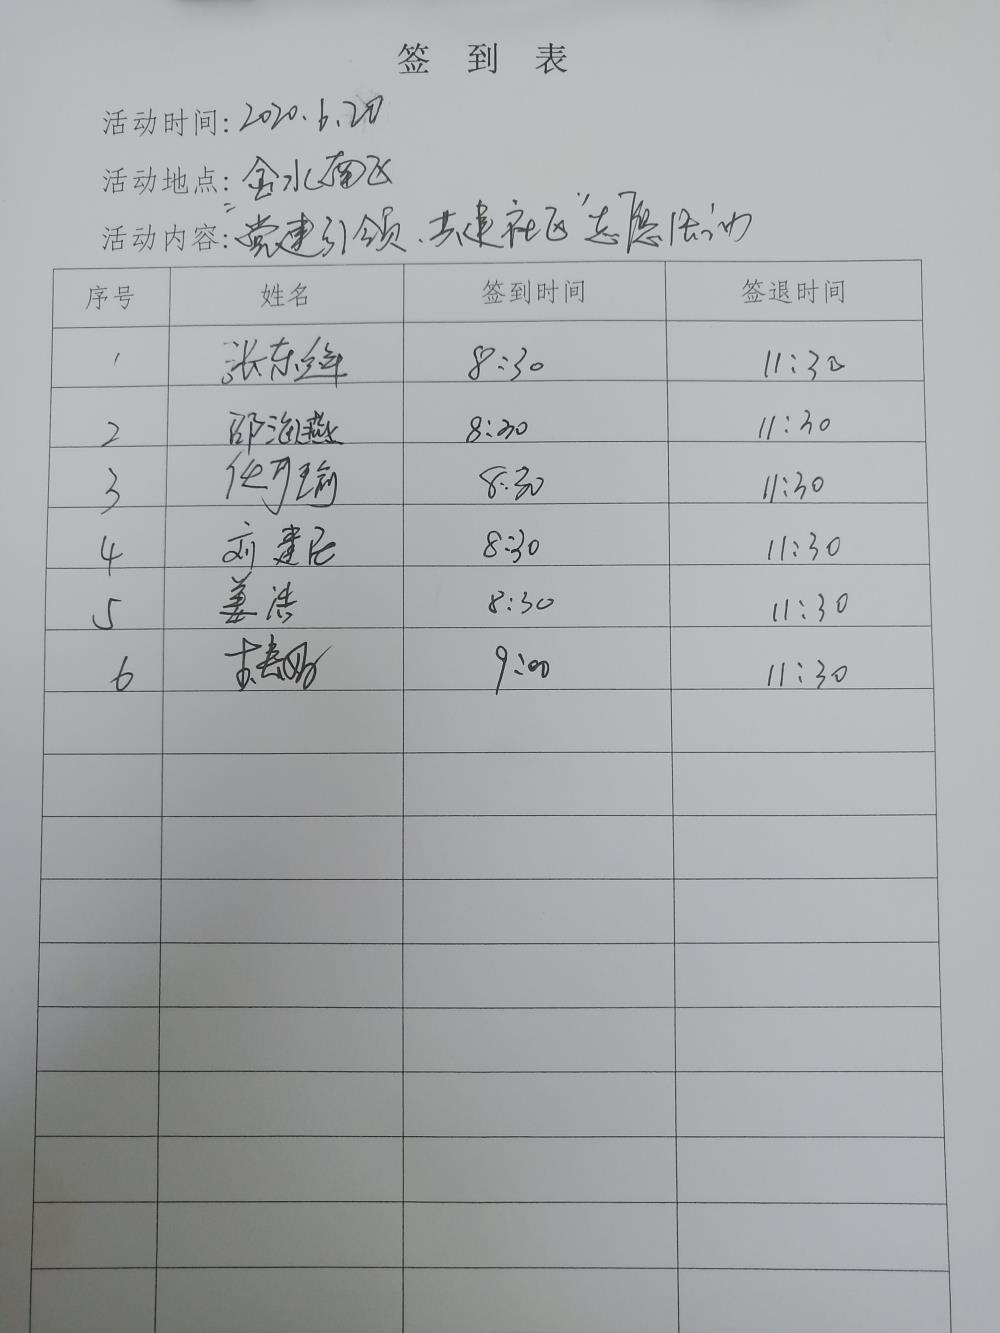 签到表
活动时间: 2020.6.20
活动地点: 金水南区
活动内容: "党建引领、共建社区"志愿活动
序号 姓名 签到时间 签退时间
1 张东 8:30 11:30
2 邵海燕 8:30 11:30
3 任可瑜 8:30 11:30
4 刘建民 8:30 11:30
5 姜浩 8:30 11:30
6 9:00 11:30